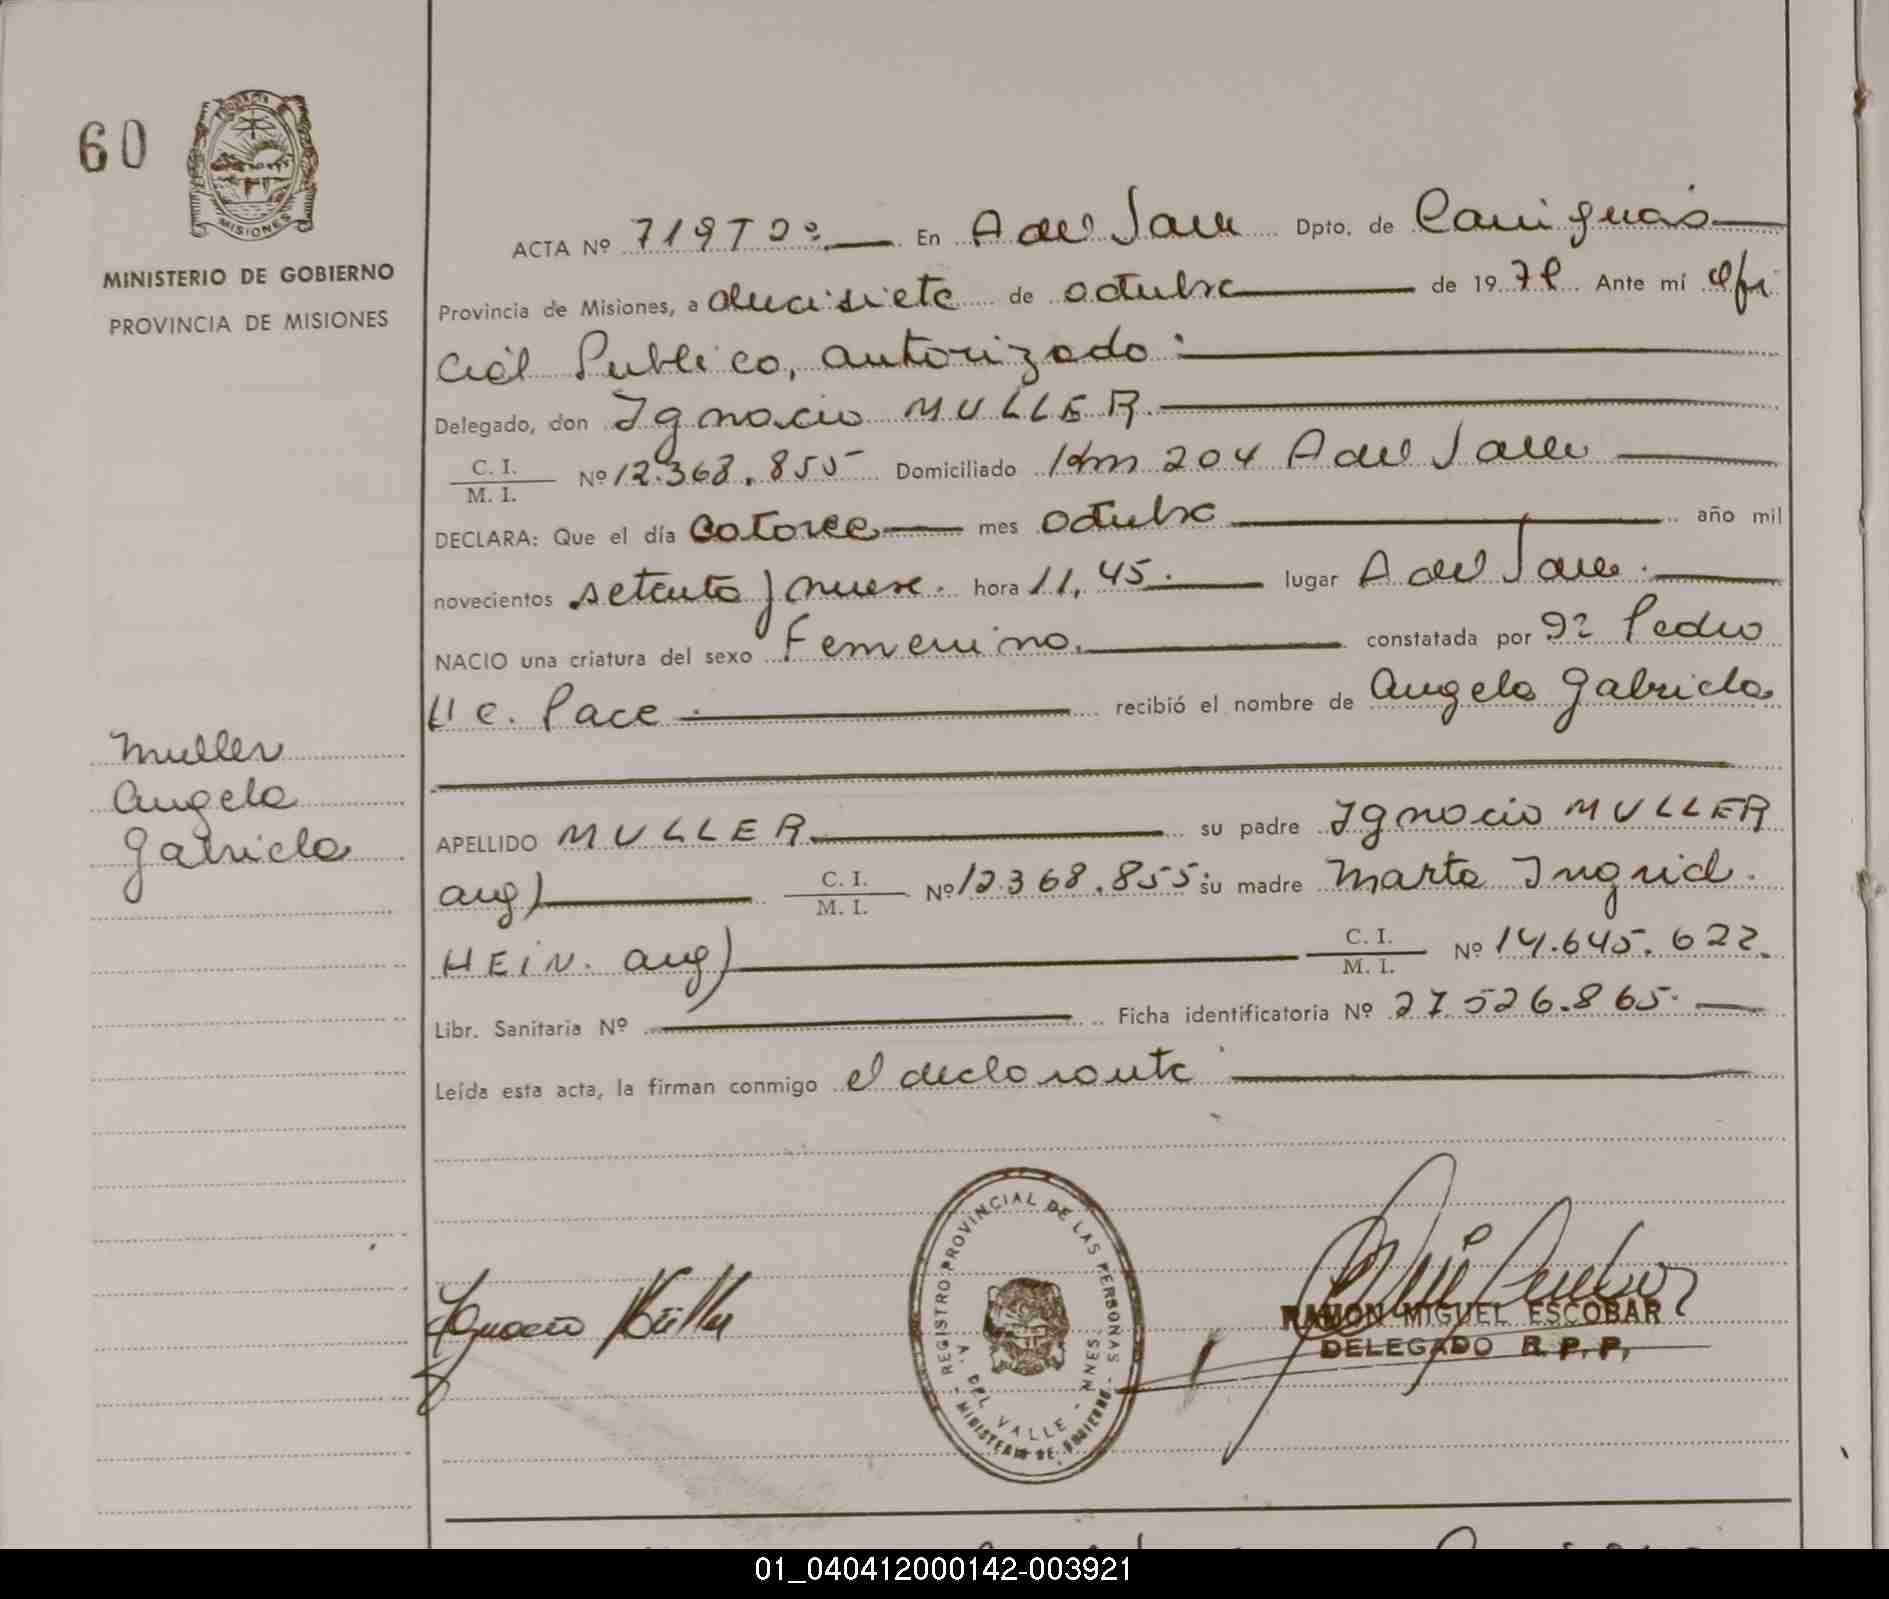 60
MISIONES
MINISTERIO DE GOBIERNO
PROVINCIA DE MISIONES
ACTA Nº 719 Tº 2º En A del Valle Dpto. de Cainguás
Provincia de Misiones, a diecisiete de octubre de 1979 Ante mí Ofi
cial Publico, autorizado:
Delegado, don Ignacio MULLER
C. I.
M. I. Nº 12.368.855 Domiciliado Km 204 A del Valle
DECLARA: Que el día catorce mes octubre año mil
novecientos setenta y nueve. hora 11,45. lugar A del Valle.
NACIO una criatura del sexo Femenino. constatada por Pedro
Pace recibió el nombre de Angela Gabriela
Muller
Angela
Gabriela
APELLIDO MULLER su padre Ignacio MULLER
arg) C. I.
M. I. Nº 12.368.855 su madre Marta Ingrid.
HEIN. arg) C. I.
M. I. Nº 14.645.622.
Libr. Sanitaria Nº Ficha identificatoria Nº 27.526.865.
Leída esta acta, la firman conmigo el declarante
Ignacio Müller
REGISTRO PROVINCIAL DE LAS PERSONAS
A. DEL VALLE - MNES.
MINISTERIO DE GOBIERNO
RAMON MIGUEL ESCOBAR
DELEGADO R. P. P.
01_040412000142-003921